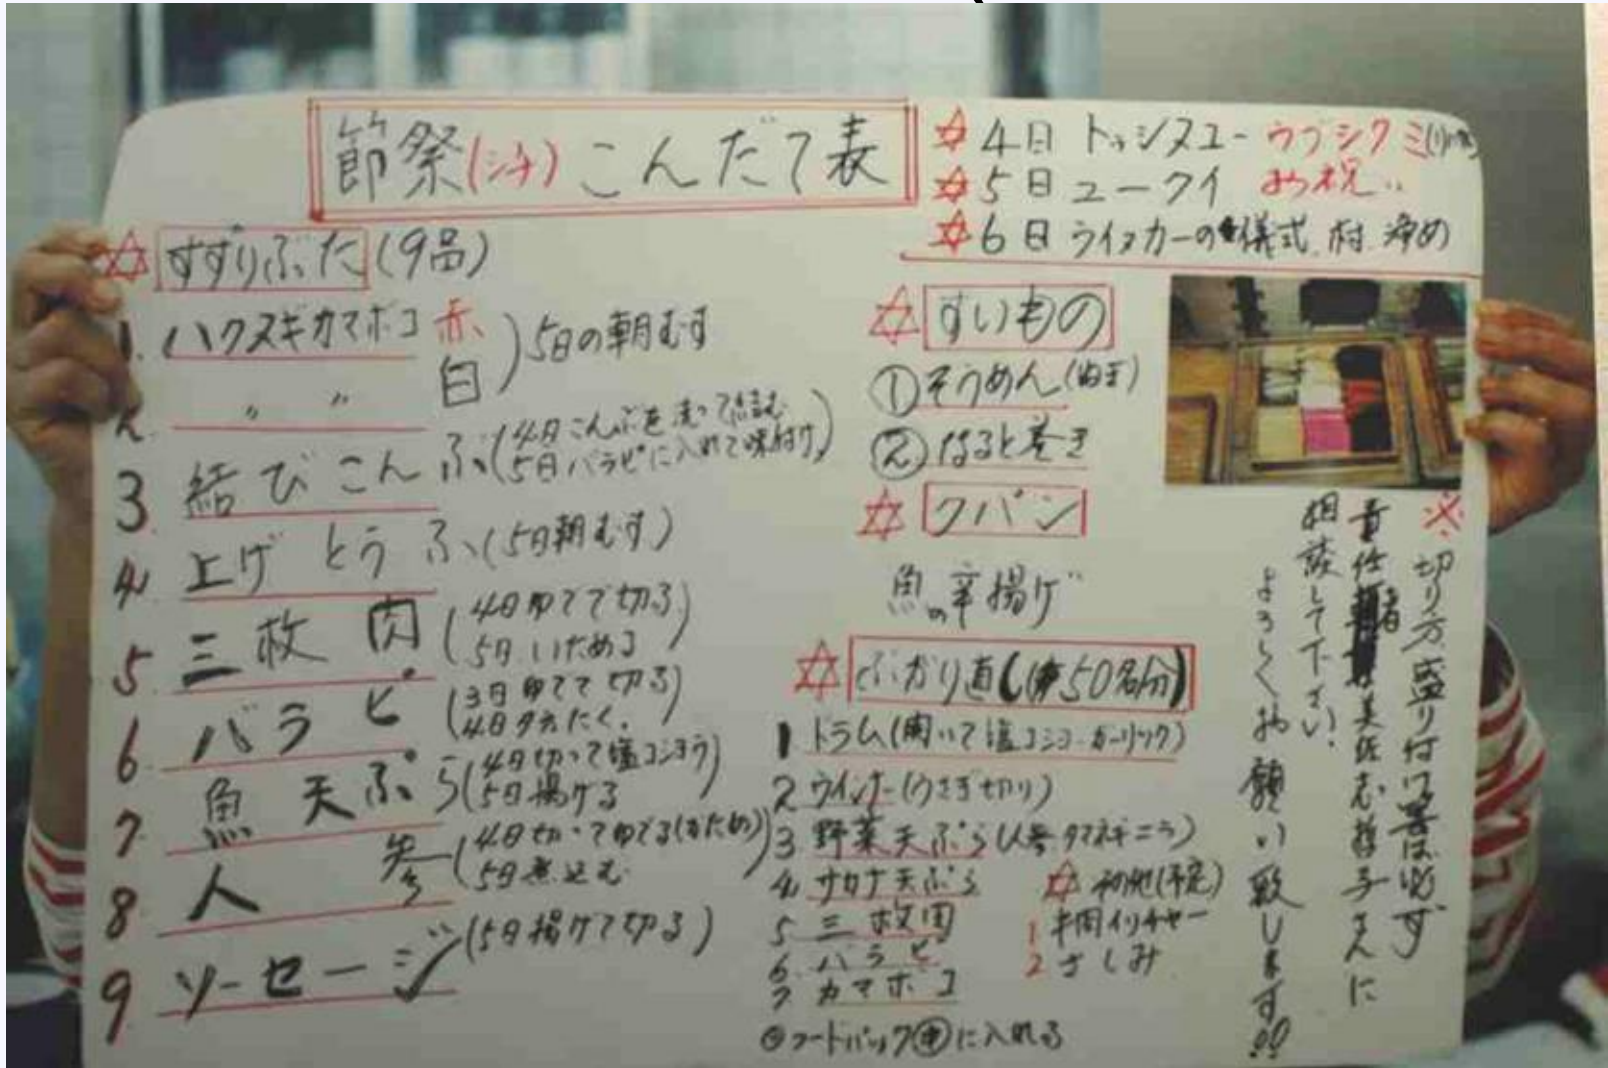 節祭(シチ)こんだて表
☆4日 トゥシヌユー ウブシクミ
☆5日 ユークイ お祝い
☆6日 ウイヌカーの儀式、村 浄め
☆すずりぶた(9品)
1. ハクヌギカマボコ 赤
2. 〃 〃 白
5日の朝むす
3. 結びこんぶ(4日こんぶを洗って結む
5日バラピに入れて味付け)
4. 上げとうふ(5日朝むす)
5. 三枚肉(4日ゆでて切る
5日いためる)
6. バラピ(3日ゆでて切る
4日夕方たく.)
7. 魚天ぷら(4日切って塩コショウ
5日揚げる
8. 人参(4日切ってゆでる(かため)
5日煮込む
9. ソーセージ(5日揚げて切る)
☆すいもの
①そうめん
②なると巻き
☆クパン
魚の辛揚げ
☆ぶがり直(50名分)
1 トラム(開いて塩コショーガーリック)
2 ウインナー(うさぎ切り)
3 野菜天ぷら(人参タマネギニラ)
4 サカナ天ぷら
5 三枚肉
6 バラピ
7 カマボコ
◎フードパック㊥に入れる
☆ (予定)
1 イリチャー
2 さしみ
※切り方、盛り付け等は必ず
責任者 美佐志 子さんに
相談して下さい.
よろしくお願い致します!!